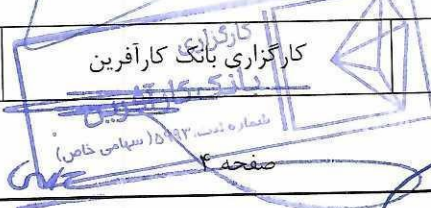 کارگزاری بانک کارآفرین
کارگزاری
بانک کارآفرین
(سهامی خاص)
صفحه ۴